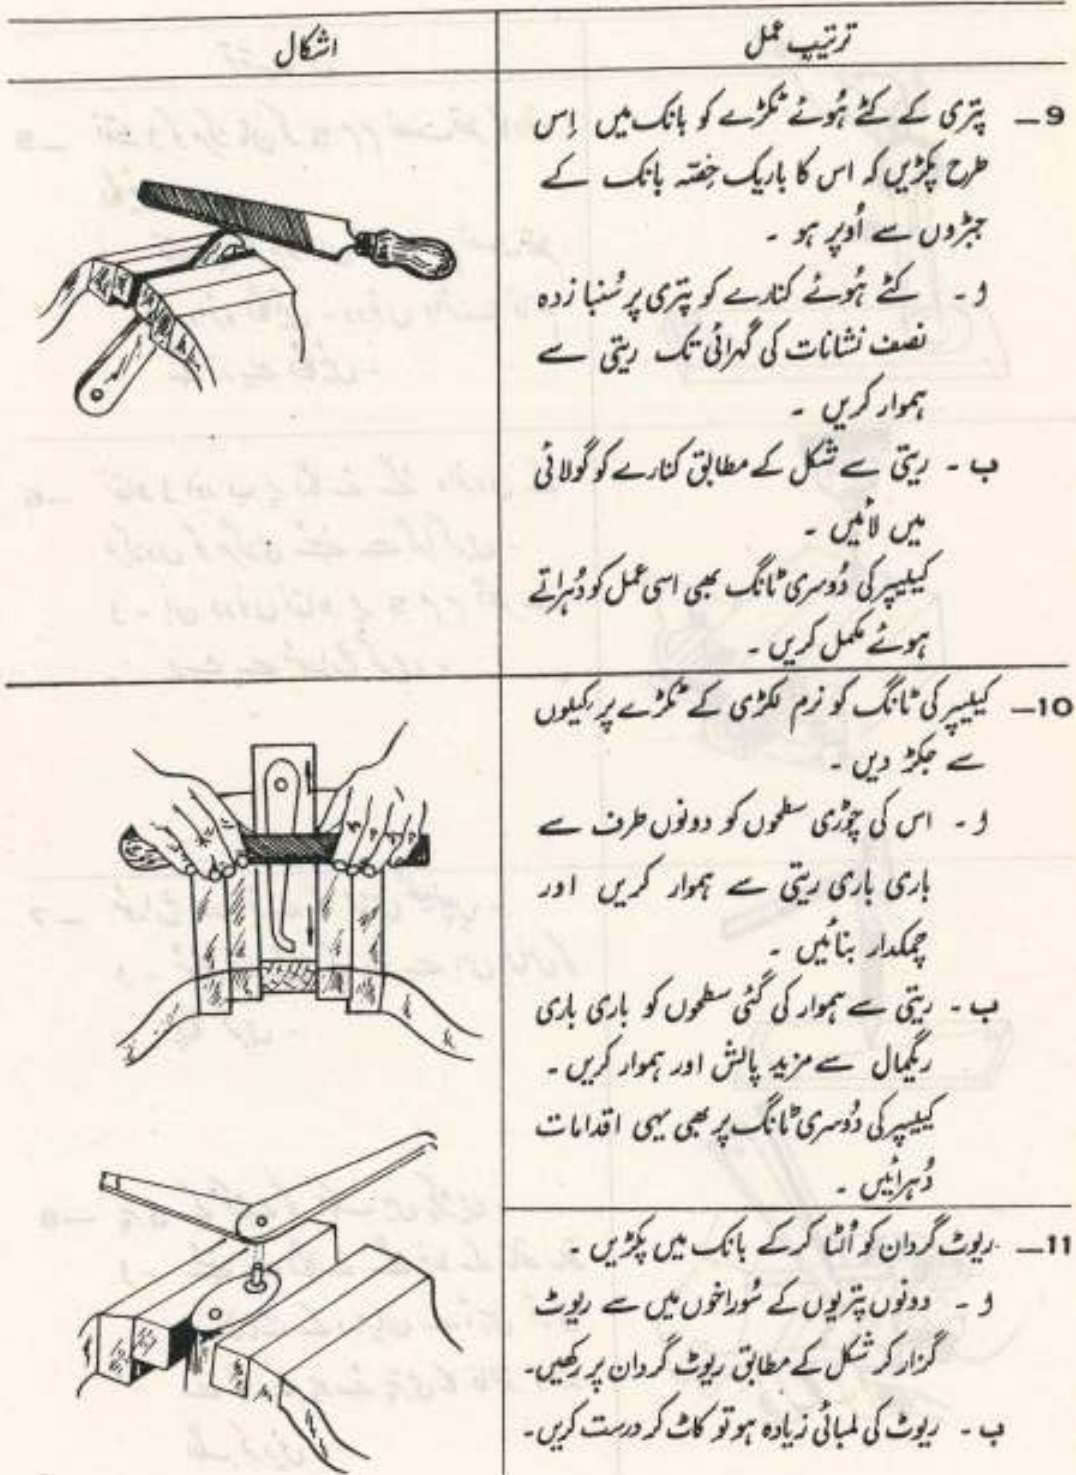 ترتیب عمل
اشکال
9— پتری کے کٹے ہُوئے ٹکڑے کو بانک میں اِس
طرح پکڑیں کہ اس کا باریک حِصّہ بانک کے
جبڑوں سے اُوپر ہو ۔
ا ۔ کٹے ہُوئے کنارے کو پتری پر سُنبا زدہ
نصف نشانات کی گہرائی تک ریتی سے
ہموار کریں ۔
ب ۔ ریتی سے شکل کے مطابق کنارے کو گولائی
میں لائیں ۔
کیلیپر کی دُوسری ٹانگ بھی اسی عمل کو دُہراتے
ہوئے مکمل کریں ۔
10— کیلیپر کی ٹانگ کو نرم لکڑی کے ٹکڑے پر کیلوں
سے جکڑ دیں ۔
ا ۔ اس کی چوڑی سطحوں کو دونوں طرف سے
باری باری ریتی سے ہموار کریں اور
چمکدار بنائیں ۔
ب ۔ ریتی سے ہموار کی گئی سطحوں کو باری باری
ریگمال سے مزید پالش اور ہموار کریں ۔
کیلیپر کی دُوسری ٹانگ پر بھی یہی اقدامات
دُہرائیں ۔
11— ریوٹ گردان کو اُلٹا کرکے بانک میں پکڑیں ۔
ا ۔ دونوں پتریوں کے سُوراخوں میں سے ریوٹ
گزار کر شکل کے مطابق ریوٹ گردان پر رکھیں۔
ب ۔ ریوٹ کی لمبائی زیادہ ہو تو کاٹ کر درست کریں۔